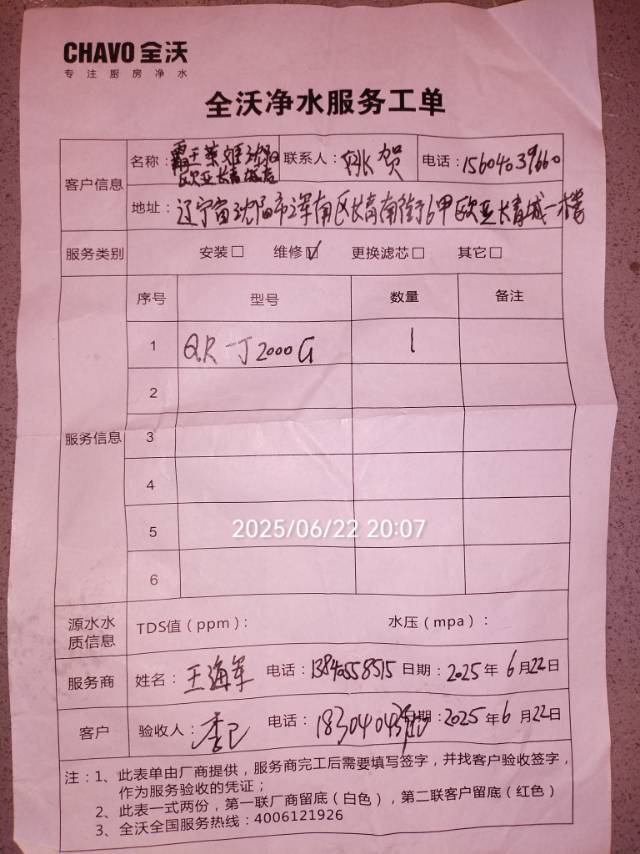 CHAVO 全沃
专注厨房净水
全沃净水服务工单
客户信息
名称：霸王茶姬沈阳欧亚长青城店 联系人：姚贺 电话：15604039660
地址：辽宁省沈阳市浑南区长青南街6甲欧亚长青城一楼
服务类别 安装□ 维修☑ 更换滤芯□ 其它□
服务信息
序号 型号 数量 备注
1 QR-J2000G 1
2
3
4
5
6
2025/06/22 20:07
源水水质信息 TDS值（ppm）： 水压（mpa）：
服务商 姓名：王海军 电话：13840558515 日期：2025年6月22日
客户 验收人： 电话： 日期：2025年6月22日
注：1、此表单由厂商提供，服务商完工后需要填写签字，并找客户验收签字，
作为服务验收的凭证；
2、此表一式两份，第一联厂商留底（白色），第二联客户留底（红色）
3、全沃全国服务热线：4006121926